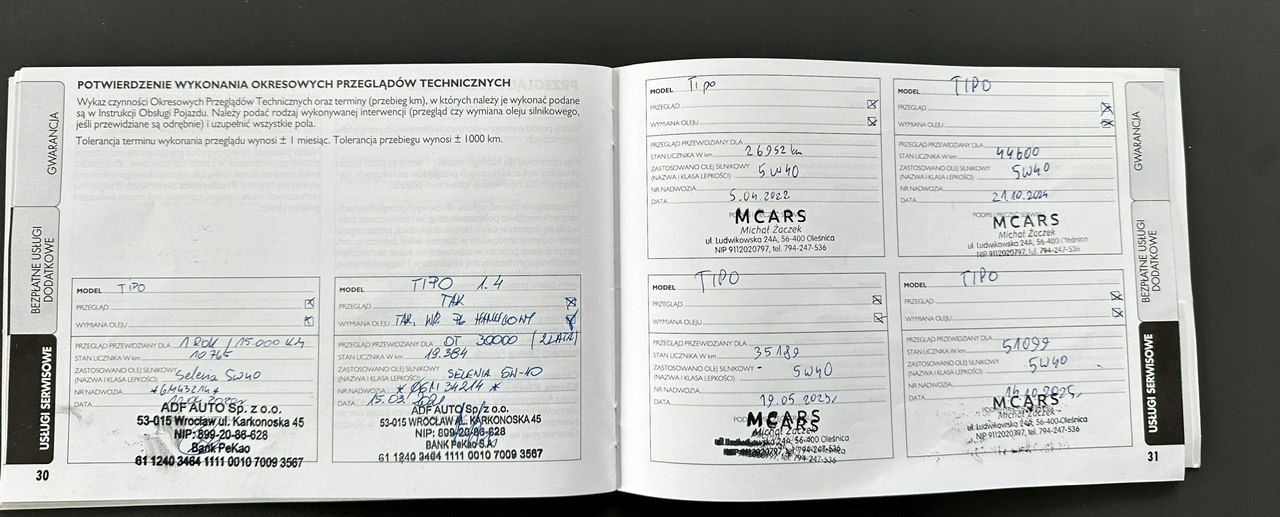 GWARANCJA
BEZPŁATNE USŁUGI
DODATKOWE
USŁUGI SERWISOWE
POTWIERDZENIE WYKONANIA OKRESOWYCH PRZEGLĄDÓW TECHNICZNYCH
Wykaz czynności Okresowych Przeglądów Technicznych oraz terminy (przebieg km), w których należy je wykonać podane
są w Instrukcji Obsługi Pojazdu. Należy podać rodzaj wykonywanej interwencji (przegląd czy wymiana oleju silnikowego,
jeśli przewidziane są odrębnie) i uzupełnić wszystkie pola.
Tolerancja terminu wykonania przeglądu wynosi ± 1 miesiąc. Tolerancja przebiegu wynosi ± 1000 km.
MODEL TIPO
PRZEGLĄD
WYMIANA OLEJU
PRZEGLĄD PRZEWIDZIANY DLA 1 ROK / 15.000 KM
STAN LICZNIKA W km 10765
ZASTOSOWANO OLEJ SILNIKOWY
(NAZWA I KLASA LEPKOŚCI) Selena 5W40
NR NADWOZIA
DATA
ADF AUTO Sp. z o.o.
53-015 Wrocław,ul. Karkonoska 45
NIP: 899-20-86-628
Bank PeKao
61 1240 3464 1111 0010 7009 3567
30
MODEL TIPO 1.4
PRZEGLĄD TAK
WYMIANA OLEJU TAK,
PRZEGLĄD PRZEWIDZIANY DLA OT 30000 (2 LATA)
STAN LICZNIKA W km 19384
ZASTOSOWANO OLEJ SILNIKOWY
(NAZWA I KLASA LEPKOŚCI) SELENIA 5W-40
NR NADWOZIA
DATA 15.03.
ADF AUTO Sp. z o.o.
53-015 WROCŁAW,UL. KARKONOSKA 45
NIP: 899-20-86-628
BANK PeKao S.A.
61 1240 3464 1111 0010 7009 3567
MODEL Tipo
PRZEGLĄD
WYMIANA OLEJU
PRZEGLĄD PRZEWIDZIANY DLA
STAN LICZNIKA W km 26952 km
ZASTOSOWANO OLEJ SILNIKOWY
(NAZWA I KLASA LEPKOŚCI) 5W40
NR NADWOZIA
DATA 5.04.2022
MCARS
Michał Żaczek
ul. Ludwikowska 24A, 56-400 Oleśnica
NIP 9112020797, tel. 794-247-536
MODEL TIPO
PRZEGLĄD
WYMIANA OLEJU
PRZEGLĄD PRZEWIDZIANY DLA
STAN LICZNIKA W km 44600
ZASTOSOWANO OLEJ SILNIKOWY
(NAZWA I KLASA LEPKOŚCI) 5W40
NR NADWOZIA
DATA 21.10.2024
MCARS
Michał Żaczek
ul. Ludwikowska 24A, 56-400 Oleśnica
NIP 9112020797, tel. 794-247-536
MODEL TIPO
PRZEGLĄD
WYMIANA OLEJU
PRZEGLĄD PRZEWIDZIANY DLA
STAN LICZNIKA W km 35189
ZASTOSOWANO OLEJ SILNIKOWY
(NAZWA I KLASA LEPKOŚCI) 5W40
NR NADWOZIA
DATA 19.05.
MCARS
Michał Żaczek
24A, 56-400 Oleśnica
tel. 794-247-536
MODEL TIPO
PRZEGLĄD
WYMIANA OLEJU
PRZEGLĄD PRZEWIDZIANY DLA
STAN LICZNIKA W km 51099
ZASTOSOWANO OLEJ SILNIKOWY
(NAZWA I KLASA LEPKOŚCI) 5W40
NR NADWOZIA
DATA 14.10.2025r.
MCARS
Michał Żaczek
ul. Ludwikowska 24A, 56-400 Oleśnica
NIP 9112020797, tel. 794-247-536
31
GWARANCJA
BEZPŁATNE USŁUGI
DODATKOWE
USŁUGI SERWISOWE